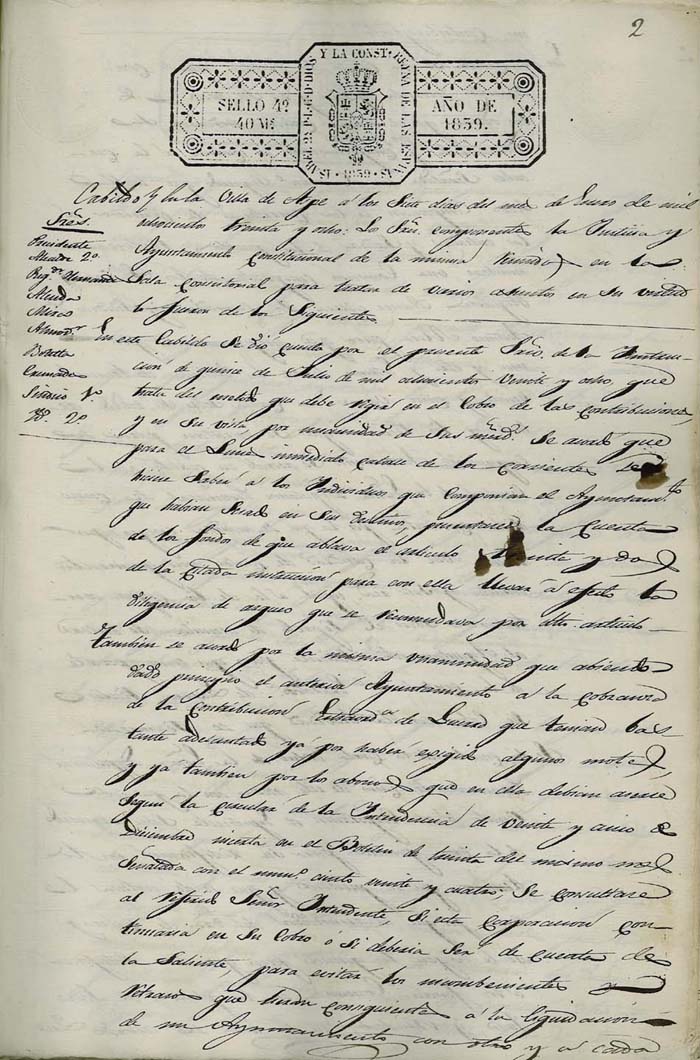 2
YSABEL 2ª P.L.G.D DIOS Y LA CONST. REYNA DE LAS ESPAÑAS
SELLO 4º
40 Mˢ
AÑO DE
1839.
1839
Cabildo
Señs.
Presidente
Alcalde 2º
Regᵒʳ
Almodʳ
Granado
Sindico 1º
Yd. 2º
Y en la Villa de a los siete dias del mes de Enero de mil
ochocientos treinta y nueve: Los Sres. componentes la Justicia y
Ayuntamiento Constitucional de la misma reunidos en la
Sala consistorial para tratar de varios asuntos en su unidad
lo fueron de los Siguientes
En este Cabildo se dió cuenta por el presente Srio. de la Instruc-
cion de quince de Julio de mil ochocientos veinte y ocho, que
trata del metodo que debe regir en el cobro de las contribuciones,
y en su vista, por unanimidad de sus mrds. Se acordó que
para el Lunes inmediato catorce de los corrientes se
hiciese saber á los Individuos que componian el Ayuntamᵗᵒ
que habian en sus destinos, presentasen la cuenta
de los fondos de que ablava el articulo treinta y dos
de la citada instruccion para con ella llevar á efecto la
diligencia de arqueo que se recomendava por dho. articulo
Tambien se acordó por la misma unanimidad que abiendo
dado principio el anterior Ayuntamiento á la cobranza
de la Contribucion Extraordᵃ de Guerra que tenian bas-
tante adelantada yá por haber exigido algunos
y yá tambien por los abonos que en ella debian
segun la circular de la Intendencia de veinte y cinco de
Diciembre inserta en el Boletin de treinta del mismo mes
Señalada con el numº ciento veinte y cuatro; Se consultase
al referido Señor Intendente, si esta corporacion con-
tinuaria en su cobro ó si deberia ser de cuenta de
la Saliente, para evitar los y
retrasos que heran consiguientes á la liquidacion
de un Ayuntamiento con otro y á cada